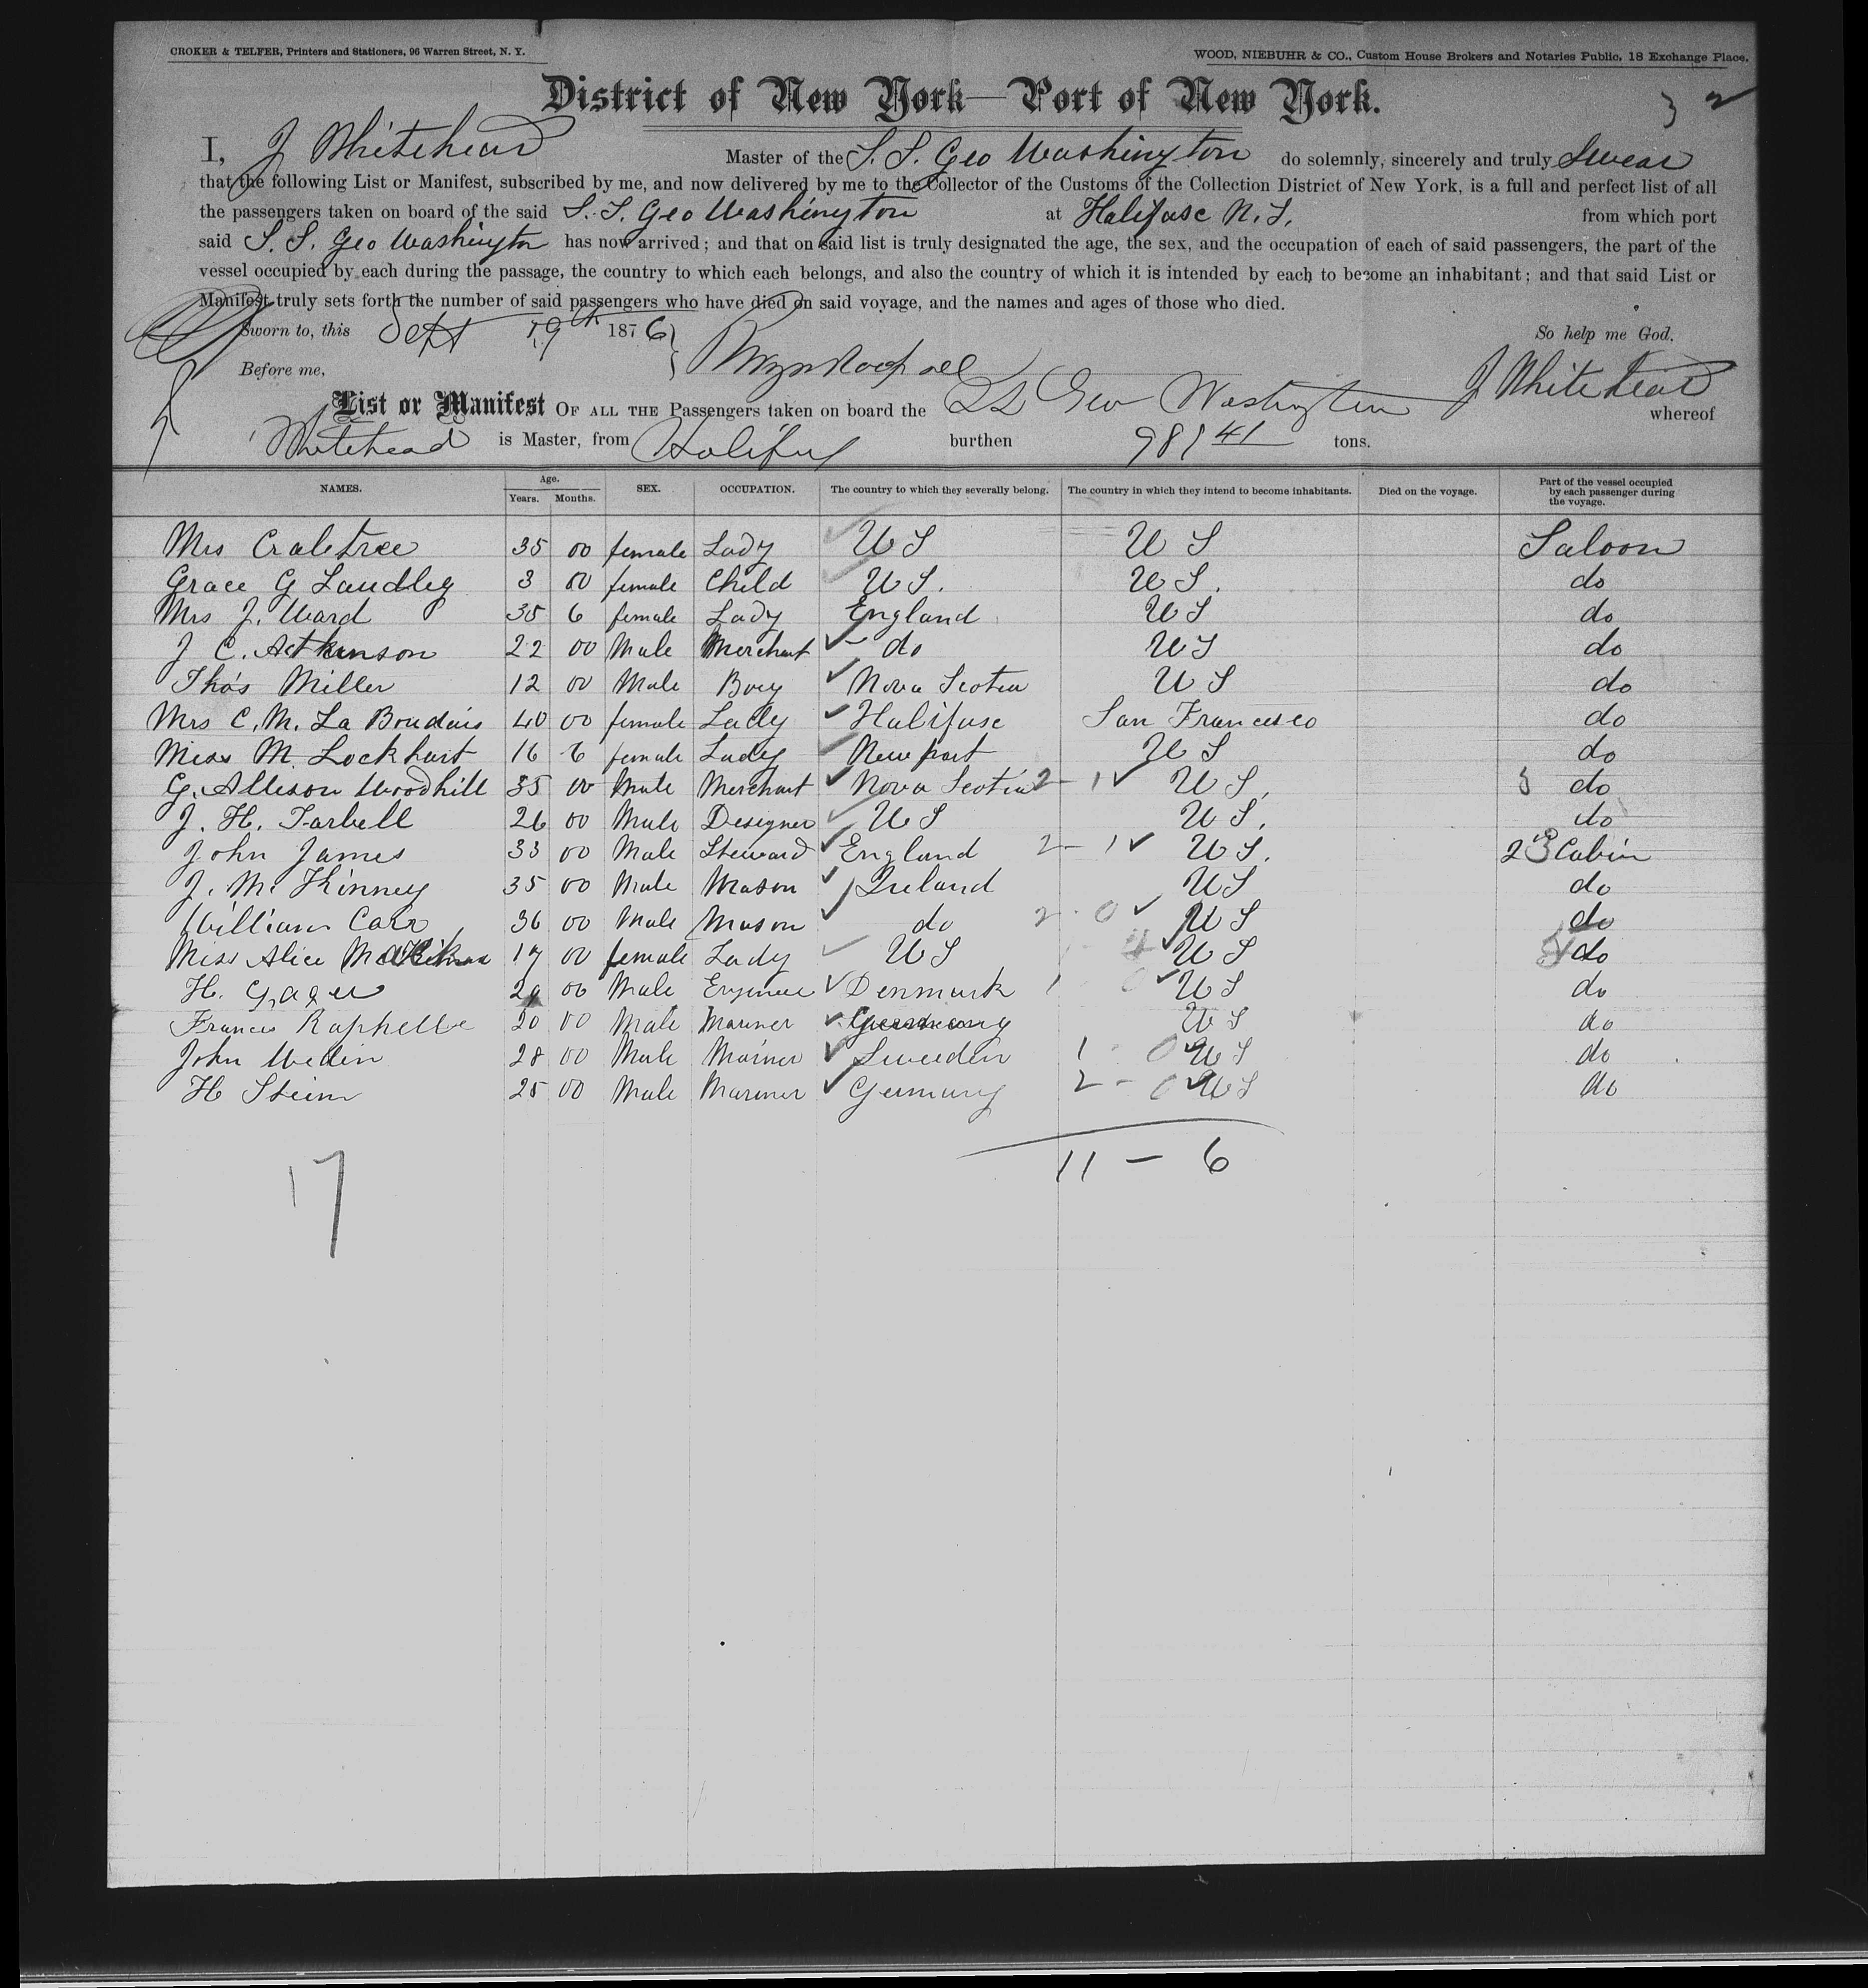 CROKER & TELFER, Printers and Stationers, 96 Warren Street, N. Y.
WOOD, NIEBUHR & CO., Custom House Brokers and Notaries Public, 18 Exchange Place.
District of New York—Port of New York.
3 2
I, J Whitehead Master of the S. S. Geo Washington do solemnly, sincerely and truly Swear
that the following List or Manifest, subscribed by me, and now delivered by me to the Collector of the Customs of the Collection District of New York, is a full and perfect list of all
the passengers taken on board of the said S. S. Geo Washington at Halifax N. S. from which port
said S. S. Geo Washington has now arrived; and that on said list is truly designated the age, the sex, and the occupation of each of said passengers, the part of the
vessel occupied by each during the passage, the country to which each belongs, and also the country of which it is intended by each to become an inhabitant; and that said List or
Manifest truly sets forth the number of said passengers who have died on said voyage, and the names and ages of those who died.
Sworn to, this Sept 19th 1876 So help me God.
Before me, J Whitehead
List or Manifest OF ALL THE Passengers taken on board the SS Geo Washington whereof
Whitehead is Master, from Halifax burthen 981 41 tons.
NAMES. Age. Years. Months. SEX. OCCUPATION. The country to which they severally belong. The country in which they intend to become inhabitants. Died on the voyage. Part of the vessel occupied by each passenger during the voyage.
Mrs Crabtree 35 00 female Lady US US Saloon
Grace G Laudley 3 00 female Child US. US. do
Mrs J. Ward 35 6 female Lady England US do
J C. Atkinson 22 00 Male Merchant do US do
Thos Miller 12 00 Male Boy Nova Scotia US do
Mrs C. M. La Boudais 40 00 female Lady Halifax San Francisco do
Miss M. Lockhart 16 6 female Lady Newport US do
G. Allison Woodhill 35 00 Male Merchant Nova Scotia 2 - 1 US. do
J. H. Tarbell 26 00 Male Designer US US. do
John James 33 00 Male Steward England 2 - 1 US. 2nd Cabin
J. McKinney 35 00 Male Mason Ireland US do
William Carr 36 00 Male Mason do 2 - 0 US do
Miss Alice 17 00 female Lady US US do
H. 00 Male Engineer Denmark 1 0 US do
Francis Raphelle 20 00 Male Mariner Germany US do
John Wedin 28 00 Male Mariner Sweden 1 - 0 US do
H Stein 25 00 Male Mariner Germany 2 - 0 US do
11 - 6
17